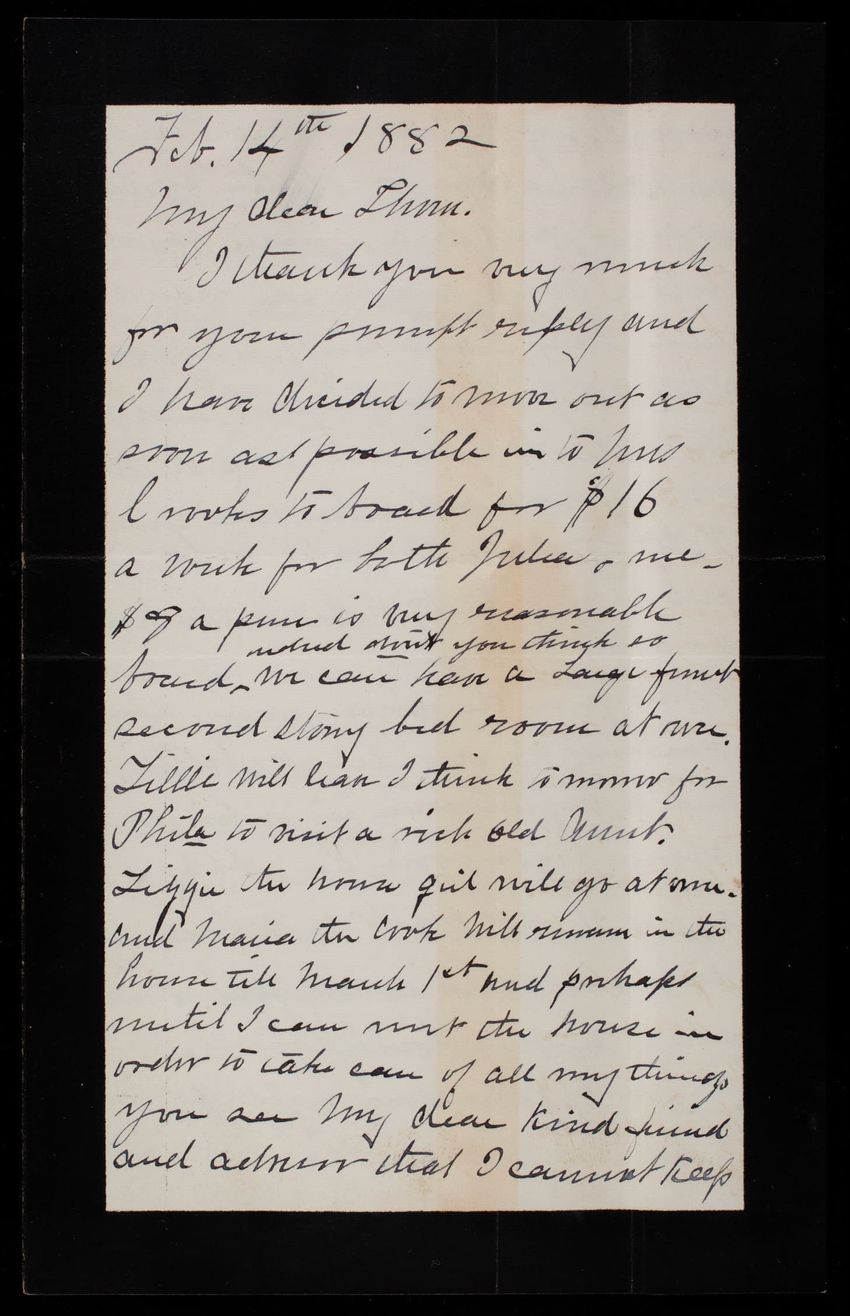 Feb. 14th 1882
My dear Thom.
I thank you very much
for your prompt reply and
I have decided to move out as
soon as possible in to Mrs
to board for $16
a week for both Julia & me -
$8 a piece is very reasonable
indeed don't you think so
board, we can have a Large front
second story bed room at once.
Lillie will leave I think to morrow for
Phila to visit a rich old Aunt.
Lizzie the house girl will go at once -
and Maria the cook will remain in the
house till March 1st and perhaps
until I can rent the house in
order to take care of all my things
you see My dear Kind friend
and advisor that I cannot Keep